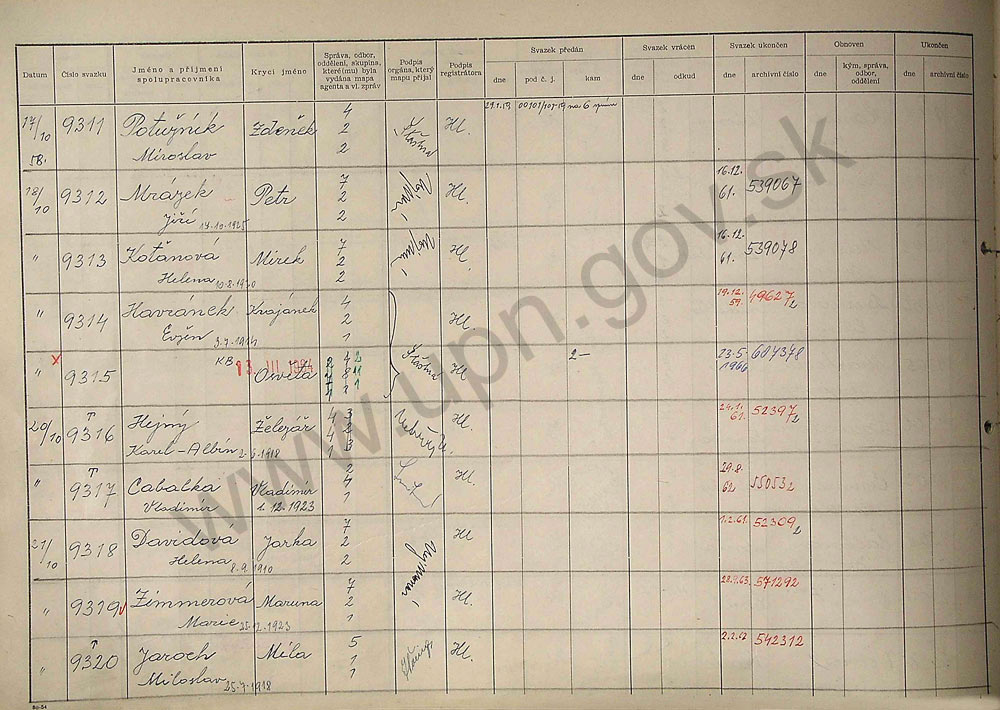 Datum
Číslo svazku
Jméno a příjmení
spolupracovníka
Krycí jméno
Správa, odbor,
oddělení, skupina,
které(mu) byla
vydána mapa
agenta a vl. zpráv
Podpis
orgána, který
mapu přijal
Podpis
registrátora
Svazek předán
dne
pod č. j.
kam
Svazek vrácen
dne
odkud
Svazek ukončen
dne
archivní číslo
Obnoven
dne
kým, správa,
odbor,
oddělení
Ukončen
dne
archivní číslo
17/10 58. 9311 Potužník Zdeněk 4 2 2 Šťastna Hl.
Miroslav
18/10 9312 Mrázek Petr 7 2 2 Hl. 16.12. 61. 539067
Jiří 14.10.1925
" 9313 Koťanová Mirek 7 2 2 Hl. 16.12. 61. 539078
Helena 10.8.1930
" 9314 Havránek Krajánek 4 2 1 Hl. 19.12. 59. 49627/2
Evžen
x " 9315 KB 13. III. 1984 Osvěta Šťastna Hl. 2– 23.5. 1966 604348
20/10 9316 Hejný Železář Hl. 24.1. 61. 52397/2
Karel-Albín 2.6.1918
" 9317 Cabalka Vladimír 2 4 1 Hl. 29.8. 62
Vladimír 1.12.1923
21/10 9318 Davidová Jarka 7 2 2 Hl. 1.2.61. 52309/2
Helena 8.9.1910
" 9319 Zimmerová Maruna 7 2 1 Hl. 28.9.63. 571292
Marie 25.12.1923
" 9320 Jaroch Míla 5 1 1 Hl. 2.2.62 542312
Miloslav 25.4.1918
www.upn.gov.sk